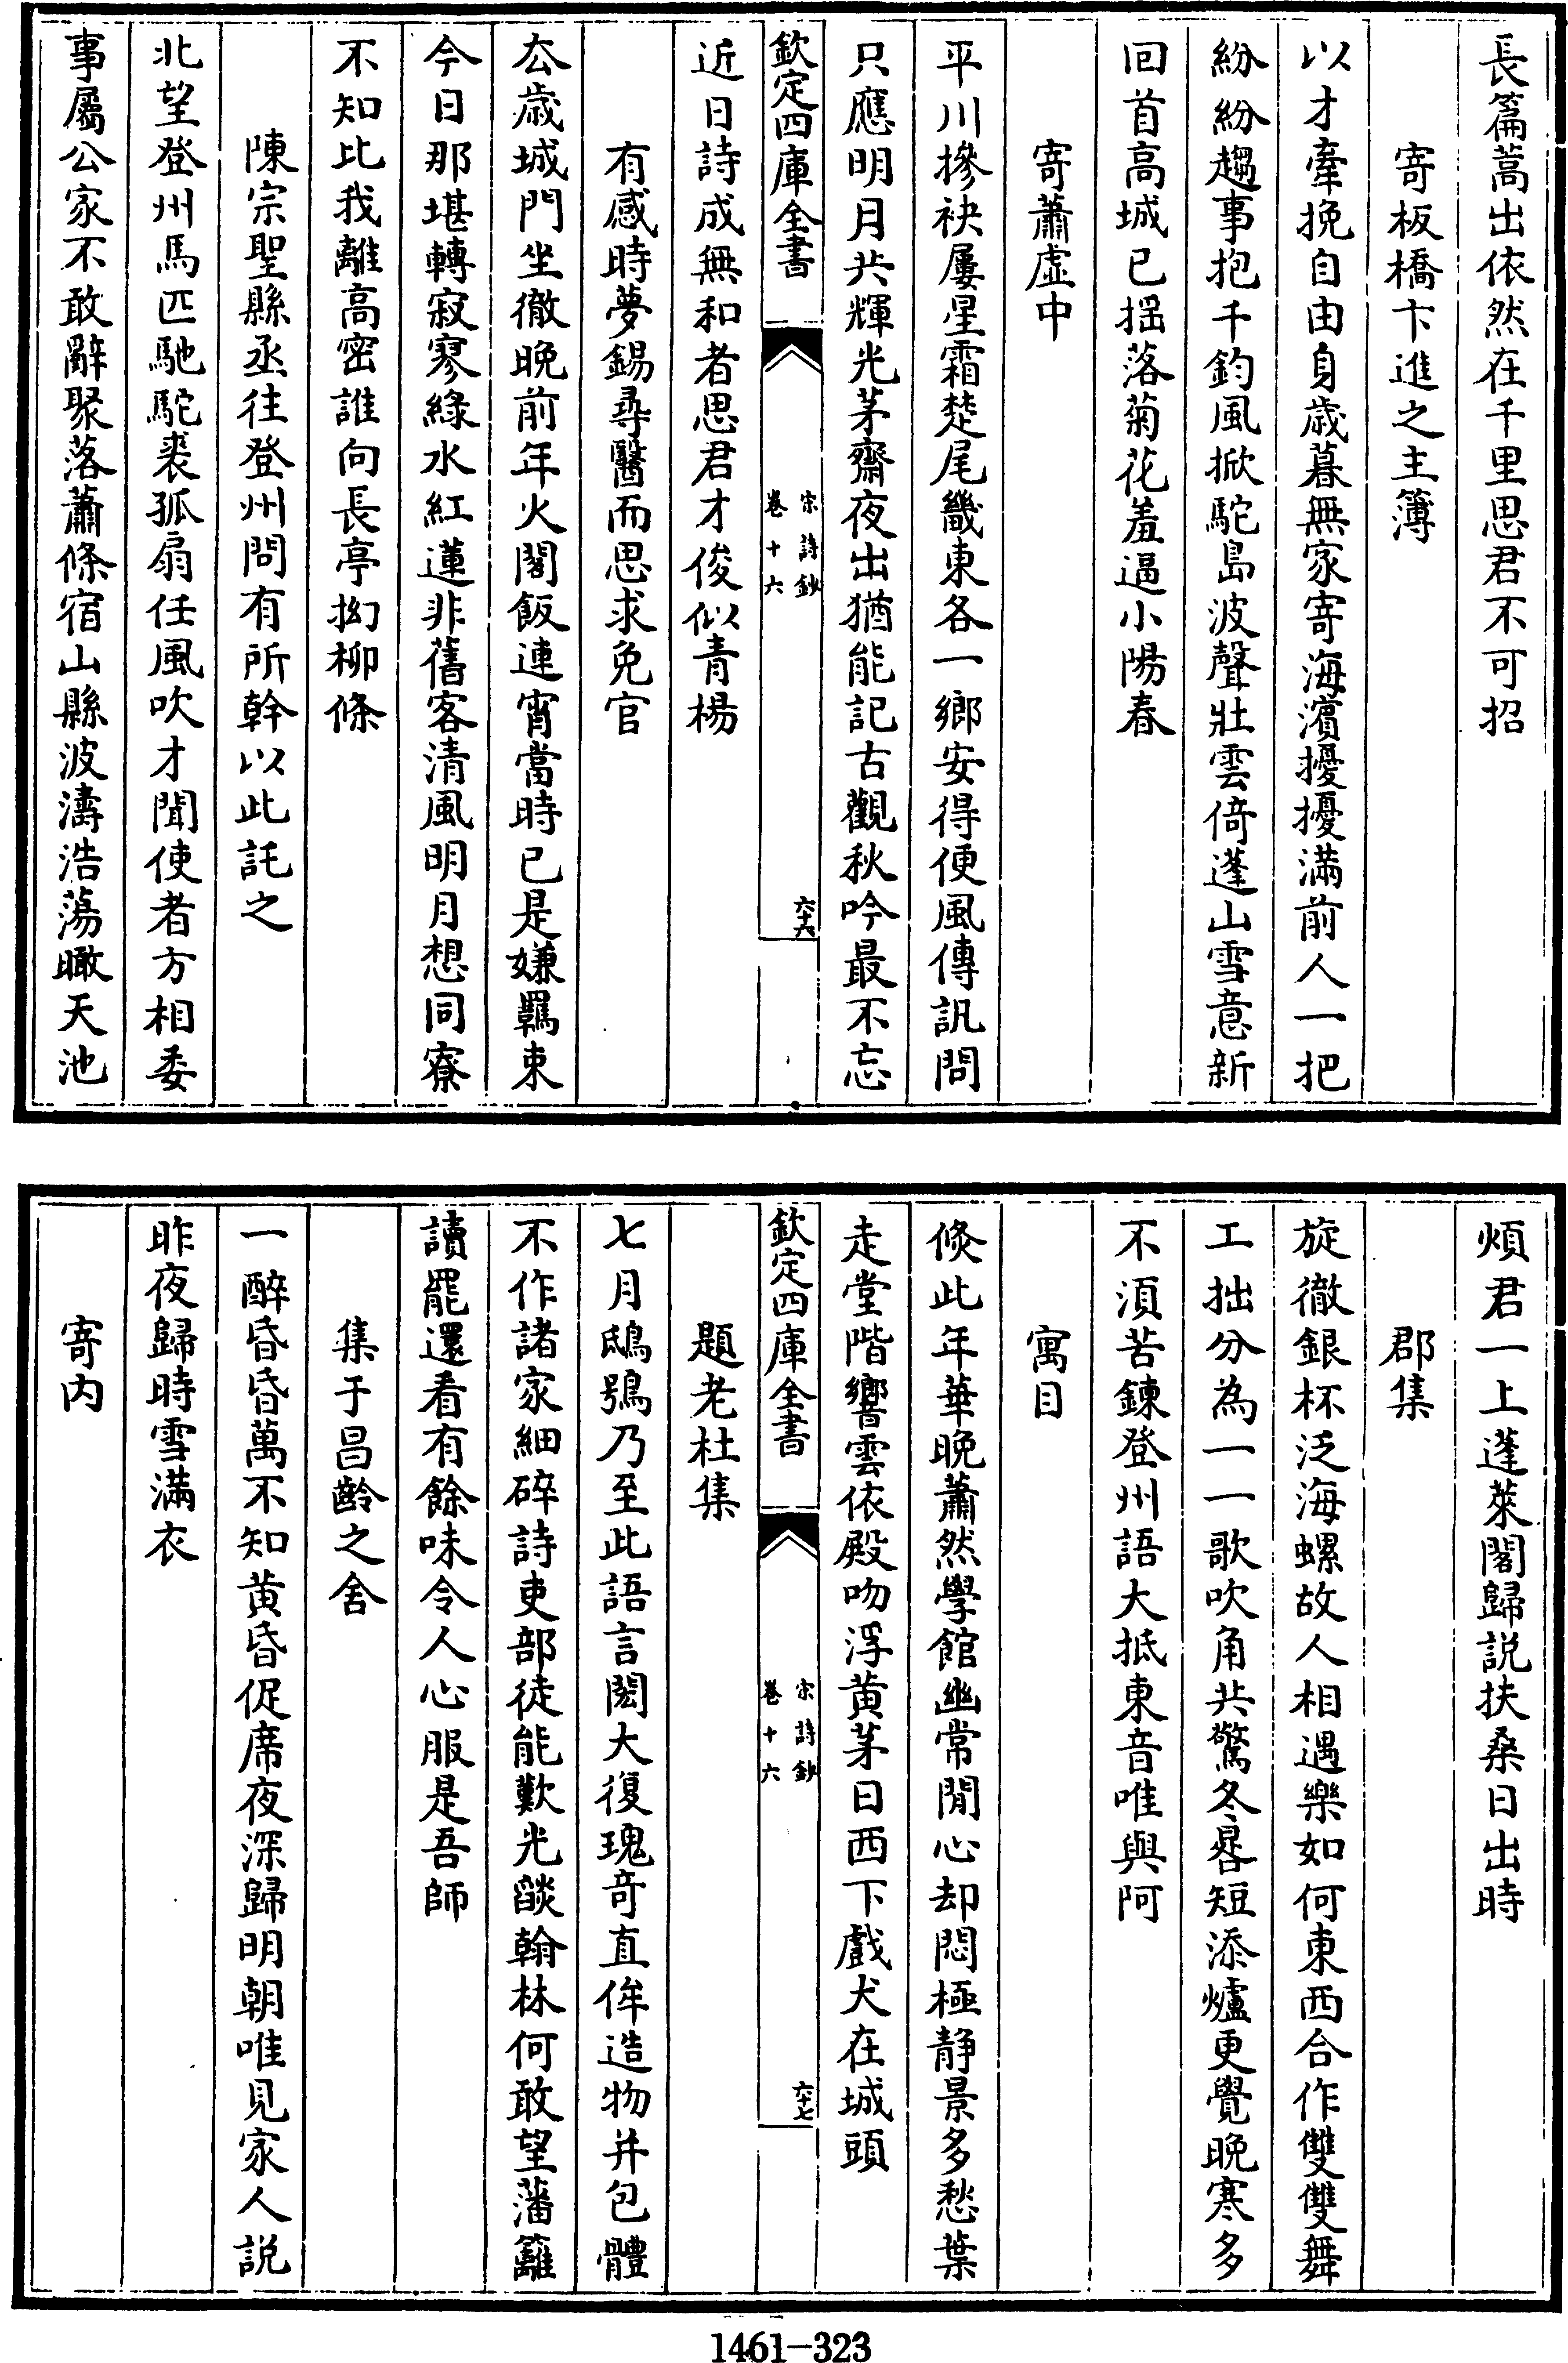 長篇蒿出依然在千里思君不可招
寄板橋卞進之主簿
以才牽挽自由身歲暮無家寄海濱擾擾滿前人一把
紛紛趨事抱千鈞風掀駝島波聲壯雲倚蓬山雪意新
回首高城已揺落菊花羞逼小陽春
寄蕭虛中
平川摻袂屢星霜楚尾畿東各一鄉安得便風傳訊問
只應明月共輝光茅齋夜出猶能記古觀秋吟最不忘
欽定四庫全書
宋詩鈔
卷十六
六十六
近日詩成無和者思君才俊似青楊
有感時夢錫尋醫而思求免官
厺歲城門坐徹晚前年火閣飯連宵當時已是嫌羈束
今日那堪轉寂寥綠水紅蓮非舊客清風明月想同寮
不知比我離高密誰向長亭拗柳條
陳宗聖縣丞往登州問有所幹以此託之
北望登州馬匹馳駝裘孤扇任風吹才聞使者方相委
事屬公家不敢辭聚落蕭條宿山縣波濤浩蕩瞰天池
煩君一上蓬萊閣歸説扶桑日出時
郡集
旋徹銀杯泛海螺故人相遇樂如何東西合作雙雙舞
工拙分為一一歌吹角共驚冬晷短添爐更覺晚寒多
不須苦鍊登州語大抵東音唯與阿
寓目
倐此年華晚蕭然學館幽常閒心却悶極靜景多愁葉
走堂階響雲依殿吻浮黄茅日西下戲犬在城頭
欽定四庫全書
宋詩鈔
卷十六
六十七
題老杜集
七月鴟鴞乃至此語言閎大復瑰奇直侔造物并包體
不作諸家細碎詩吏部徒能歎光燄翰林何敢望藩籬
讀罷還看有餘味令人心服是吾師
集于昌齡之舍
一醉昏昏萬不知黄昏促席夜深歸明朝唯見家人説
昨夜歸時雪滿衣
寄内
1461-323